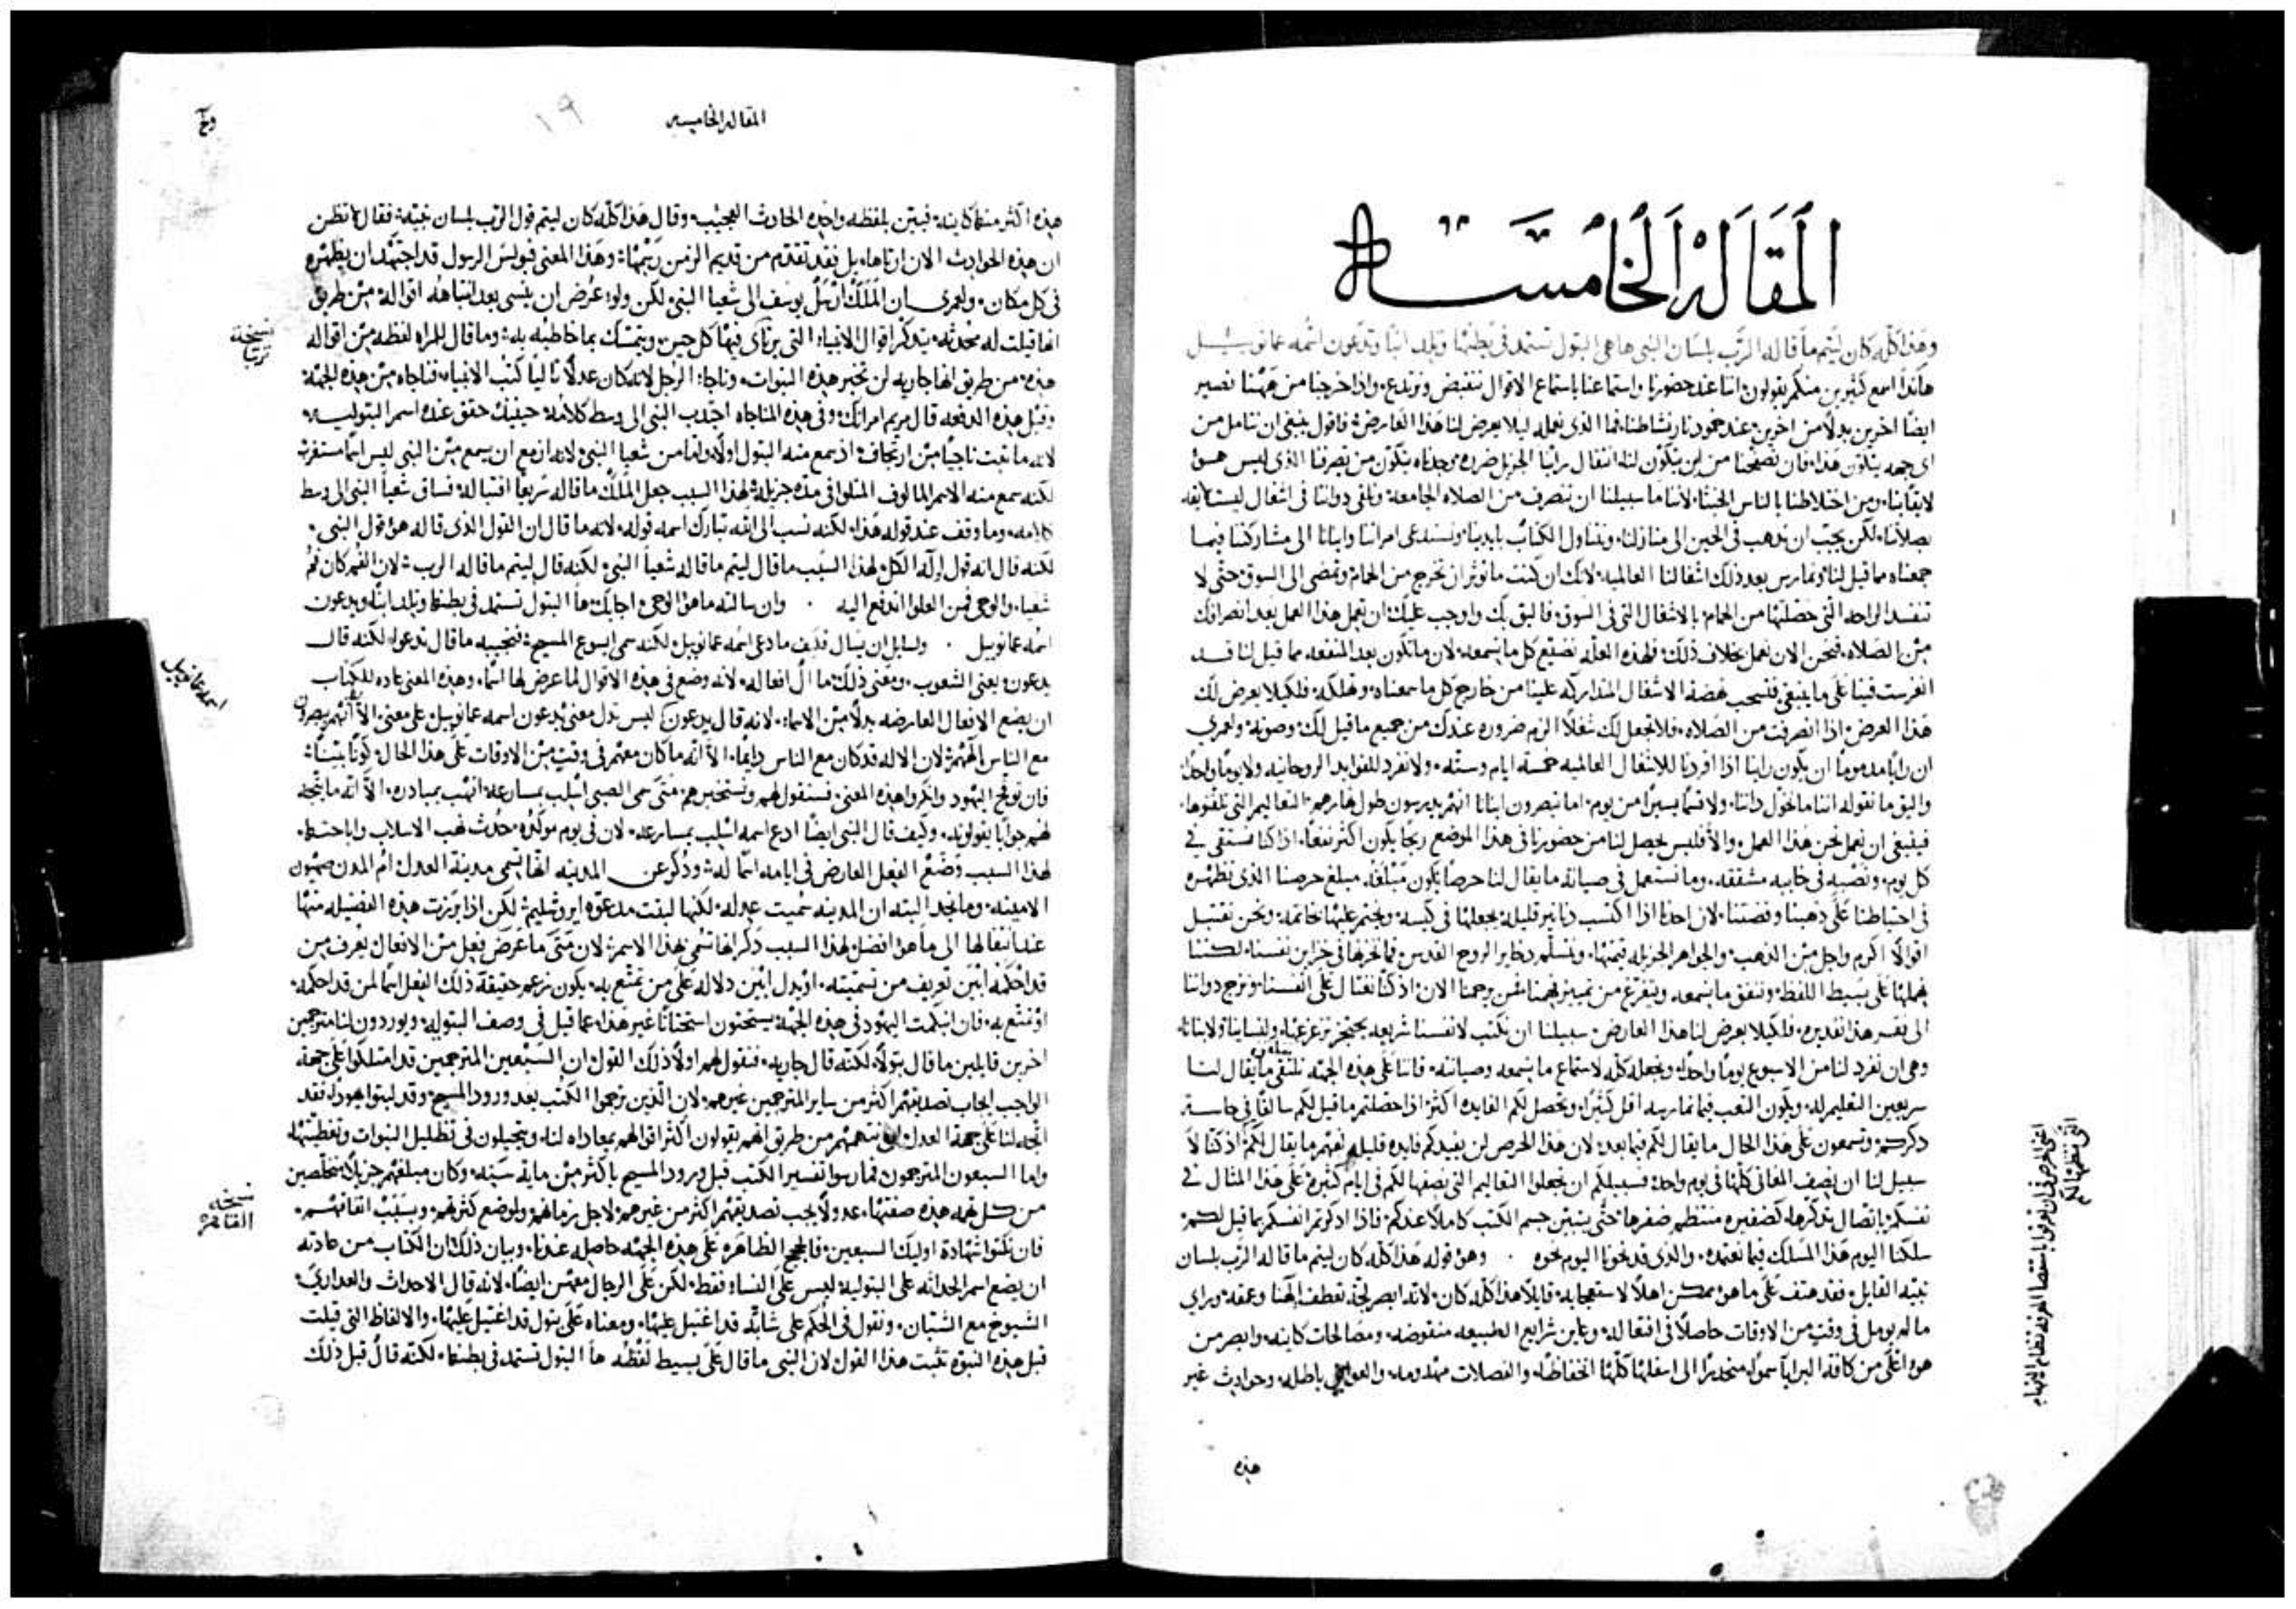 المقالة الخامسة
وهذا كله كان ليتم ما قاله الرب بلسان النبي ها هي البتول تستمد في بطنها وتلد ابنا وتدعون اسمه عمانوييل
هانذا اسمع كثيرين منكم يقولون اننا عند حضورنا واستماعنا باستماع الاقوال ننقبض ونرتدع واذا خرجنا من ههنا نصير
ايضا اخرين بدلا من اخرين عند خمود نار نشاطنا فما الذي نعمله ليلا يعرض لنا هذا العارض فاقول ينبغي ان نتامل من
اي جهه يتكون هذا فان تصفحنا من اين يتكون لنا انتقال راينا الجزيل ضرره وجدناه يتكون من تصرفنا الذي ليس هو
لايقا بنا ومن اختلاطنا بالناس الخبثا لاننا ما سبيلنا ان ننصرف من الصلاه الجامعة ونلقي ذواتنا في اشغال ليست لايقه
بصلاتنا لكن يجب ان نذهب في الحين الى منازلنا ونتناول الكتاب بايدينا ونستدعي امراتنا وابنانا الى مشاركتنا فيما
جمعناه مما قيل لنا ونمارس بعد ذلك اشغالنا العالميه لانك ان كنت ما توثر ان تخرج من الحمام وتمضي الى السوق حتى لا
تفسد الراحه التي حصلتها من الحمام بالاشغال التي في السوق فاليق بك واوجب عليك ان تعمل هذا العمل بعد انصرافك
من الصلاه فنحن الان نعمل بخلاف ذلك فلهذه العله نضيع كل ما نسمعه لان ما تكون بعد المنفعه مما قيل لنا قد
انغرست فينا على ما ينبغي فتسحب نهضة الاشغال المتداركه علينا من خارج كل ما سمعناه وتهلكه فلكيلا يعرض لك
هذا العرض اذا انصرفت من الصلاه فلا تجعل لك شغلا الزم ضروره عندك من جميع ما قيل لك وصونه ولعمري
ان رايا مذموما ان يكون راينا اذا افردنا للاشغال العالميه خمسة ايام وستة ولا نفرد للفوايد الروحانيه ولا يوما واحدا
واليق ما نقوله اننا ما نخول ذاتنا ولا قسما يسيرا من يوم اما تبصرون ابنانا انهم يدرسون طول نهارهم التعاليم التي تلقنوها
فينبغي ان نعمل نحن هذا العمل والا فليس يحصل لنا من حضورنا في هذا الموضع ربحا يكون اكثر نفعا اذ كنا نستقي في
كل يوم ونصبه في خابيه مشققه وما نستعمل في صيانة ما يقال لنا حرصا يكون مبلغه مبلغ حرصنا الذي نظهره
في احتياطنا على ذهبنا وفضتنا لان احدنا اذا اكتسب دنانير قليلة يجعلها في كيسه ويختم عليها خاتمه ونحن نقتبل
اقوالا اكرم واجل من الذهب والجواهر الجزيله قيمتها ونتسلم ذخاير الروح القدس فما نخزنها في خزاين نفسنا لكننا
نهملها على بسيط اللفظ
الى فقر هذا تقديره فلكيلا يعرض لنا هذا العارض سبيلنا ان نكتب لانفسنا شريعه
وهي ان نفرد لنا من الاسبوع يوما واحدا ونجعله كله لاستماع ما نسمعه وصيانته فاننا على هذه الجهه نلتقي ما يقال لنا
سريعين التعليم له ويكون التعب فيما نمارسه اقل كثيرا ويحصل لكم الفايده اكثر اذا حصلتم ما قيل لكم سالفا في حاسة
ذكركم وتسمعون على هذا الحال ما يقال لكم فيما بعد لان هذا الحرص لن يفيدكم فايده قليله تفهم ما يقال لكم اذ كنا لا
سبيل لنا ان نصف المعاني كلها في يوم واحد فسبيلكم ان تجعلوا التعاليم التي نصفها لكم في ايام كثيره على هذا المثال في
نفسكم باتصال تذكرها كضفيره منتظم ضفرها حتى يتبين جسم الكتب كاملا عندكم فاذا اذكرتم انفسكم بما قيل لكم
سلكنا اليوم هذا المسلك فيما نعتمده والذي قد نحونا اليوم نحوه وهو قوله هذا كله كان ليتم ما قاله الرب بلسان
نبيه القايل فقد هتف على ما هو ممكن اهلا لاستعجابه قايلا هذا كله كان لانه ابصر لجة تعطف الهنا وعمقه وراي
ما لم يومل في وقت من الاوقات حاصلا في افتعاله وعاين شرايع الطبيعه منقوضه ومصالحات كاينه وابصر من
هو اعلى من كافة البرايا سموا منحدرا الى اسفلها كلها انخفاضا والفصلات مهدومه والعوايق باطله وحوادث غير
هذه
اعني الحرص في ان تعرفوا باستقصا المعرفه نظام الاشياء
التي ننظمها لكم
المقاله الخامسه
١٩
هذه اكثر منها كاينه فبين بلفظه واحده الحادث العجيب وقال هذا كله كان ليتم قول الرب بلسان نبيه فقال لا تظن
ان هذه الحوادث الان ارتاها بل فقد تقدم من قديم الزمن رسمها وهذا المعنى فبولس الرسول قد اجتهد ان يظهره
في كل مكان ولعمري ان الملك ارسل يوسف الى شعيا النبي لكن ولو عرض ان ينسى بعد انتباهه اقواله من طريق
انها قيلت له محدثه يتذكر اقوال الانبياء التي يرتاى فيها كل حين ويتمسك بما خاطبه به وما قال للمراه لفظه من اقواله
هذه من طريق انها جاريه لن تخبر هذه النبوات وناجا الرجل لانه كان عدلا تاليا كتب الانبيا فناجاه من هذه الجهة
وقبل هذه الدفعه قال مريم امراتك وفي هذه المناجاه اجتذب النبي الى وسط كلامه حينيذ حقق عنده اسم البتوليه
لانه ما ثبت ناجيا من ارتجاف اذ سمع منه البتول اولا ولما من شعيا النبي لانه ازمع ان يسمع من النبي ليس اسما مستغربا
لكنه سمع منه الاسم المالوف المتلوا في مده جزيلة لهذا السبب جعل الملك ما قاله سريعا اقتباله فساق شعيا النبي الى وسط
كلامه وما وقف عند قوله هذا لكنه نسب الى الله تبارك اسمه قوله لانه ما قال ان القول الذي قاله هو قول النبي
لكنه قال انه قول اله الكل لهذا السبب ما قال ليتم ما قاله شعيا النبي لكنه قال ليتم ما قاله الرب لان الفم كان فم
شعيا والوحي فمن العلوا اندفع اليه وان سالته ما هو الوحي اجابك ها البتول تستمد في بطنها وتلد ابنا ويدعون
اسمه عمانوييل ولسايل ان يسال فكيف ما دعي اسمه عمانوييل لكنه سمي ايسوع المسيح فنجيبه ما قال تدعوه لكنه قال
يدعون يعني الشعوب ومعنى ذلك مال افعاله لانه وضع في هذه الاقوال لما عرض لها اسما وهذه المعنى عاده للكتاب
ان يضع الافعال العارضه بدلا من الاسماء لانه قال يدعون ليس تدل معنى يدعون اسمه عمانوييل على معنى الا انهم يبصرون
مع الناس الههم لان الاله قد كان مع الناس دايما الا انه ما كان معهم في وقت من الاوقات على هذا الحال كونا بينا
فان توقح اليهود وانكروا هذه المعنى فسنقول لهم ونستخبرهم متى سمي الصبي اسلب بمسارعه انهب بمبادره الا انه ما يتجه
لهم جوابا يقولونه وكيف قال النبي ايضا ادع اسمه اسلب بمسارعه لان في يوم مولده حدث نهب الاسلاب واباحتها
لهذا السبب وضع الفعل العارض في ايامه اسما له وذكر عن المدينه انها تسمى مدينة العدل ام المدن صهيون
الامينه وما نجد البته ان المدينه سميت عدله لكنها لبثت مدعوه ايروشليم لكن اذا برزت هذه الفضيله منها
عند انتقالها الى ما هو افضل لهذا السبب ذكر انها تسمى بهذا الاسم لان متى ما عرض فعل من الافعال يعرف من
قد احكمه ابين تعريف من تسميته او يدل ابين دلاله على من تمتع به يكون حقيقة ذلك الفعل اسما لمن قد احكمه
او تمتع به فان ابكمت اليهود في هذه الجهة يستحنون استحثاثا غير هذا عما قيل في وصف البتوله ويوردون لنا مترجمين
اخرين قايلين ما قال بتولا لكنه قال جاريه فنقول لهم اولا ذلك القول ان السبعين المترجمين قد امتلكوا على جهة
الواجب ايجاب تصديقهم اكثر من ساير المترجمين غيرهم لان الذين ترجموا الكتب بعد ورود المسيح وقد لبثوا يهودا فقد
اتجه لنا على جهة العدل ان نتهمهم من طريق انهم يقولون اكثر اقوالهم بمعاداه لنا ويتحيلون في تظليل النبوات وتغطيتها
واما السبعون المترجمون فمارسوا تفسير الكتب قبل ورود المسيح باكثر من مايه سنه وكان مبلغهم جزيلا متخلصين
من كل تهمه هذه صفتها عدولا يجب تصديقهم اكثر من غيرهم لاجل زمانهم ولموضع كثرتهم وبسبب اتفاقهم
فان نكثوا شهادة اوليك السبعين فالحجج الظاهره على هذه الجهه حاصله عندنا وبيان ذلك ان الكتاب من عادته
ان يضع اسم الحداثه على البتولية ليس على النساء فقط لكن على الرجال معهن ايضا لانه قال الاحداث والعدارى
الشيوخ مع الشبان ونقول في الحكم على شابه قد اغتيل عليها ومعناه على بتول قد اغتيل عليها والالفاظ التي قيلت
قبل هذه النبوه تثبت هذا القول لان النبي ما قال على بسيط لفظه ها البتول تستمد في بطنها لكنه قال قبل ذلك
نسخة
اسمه عمانوييل
نسخة
القاهره